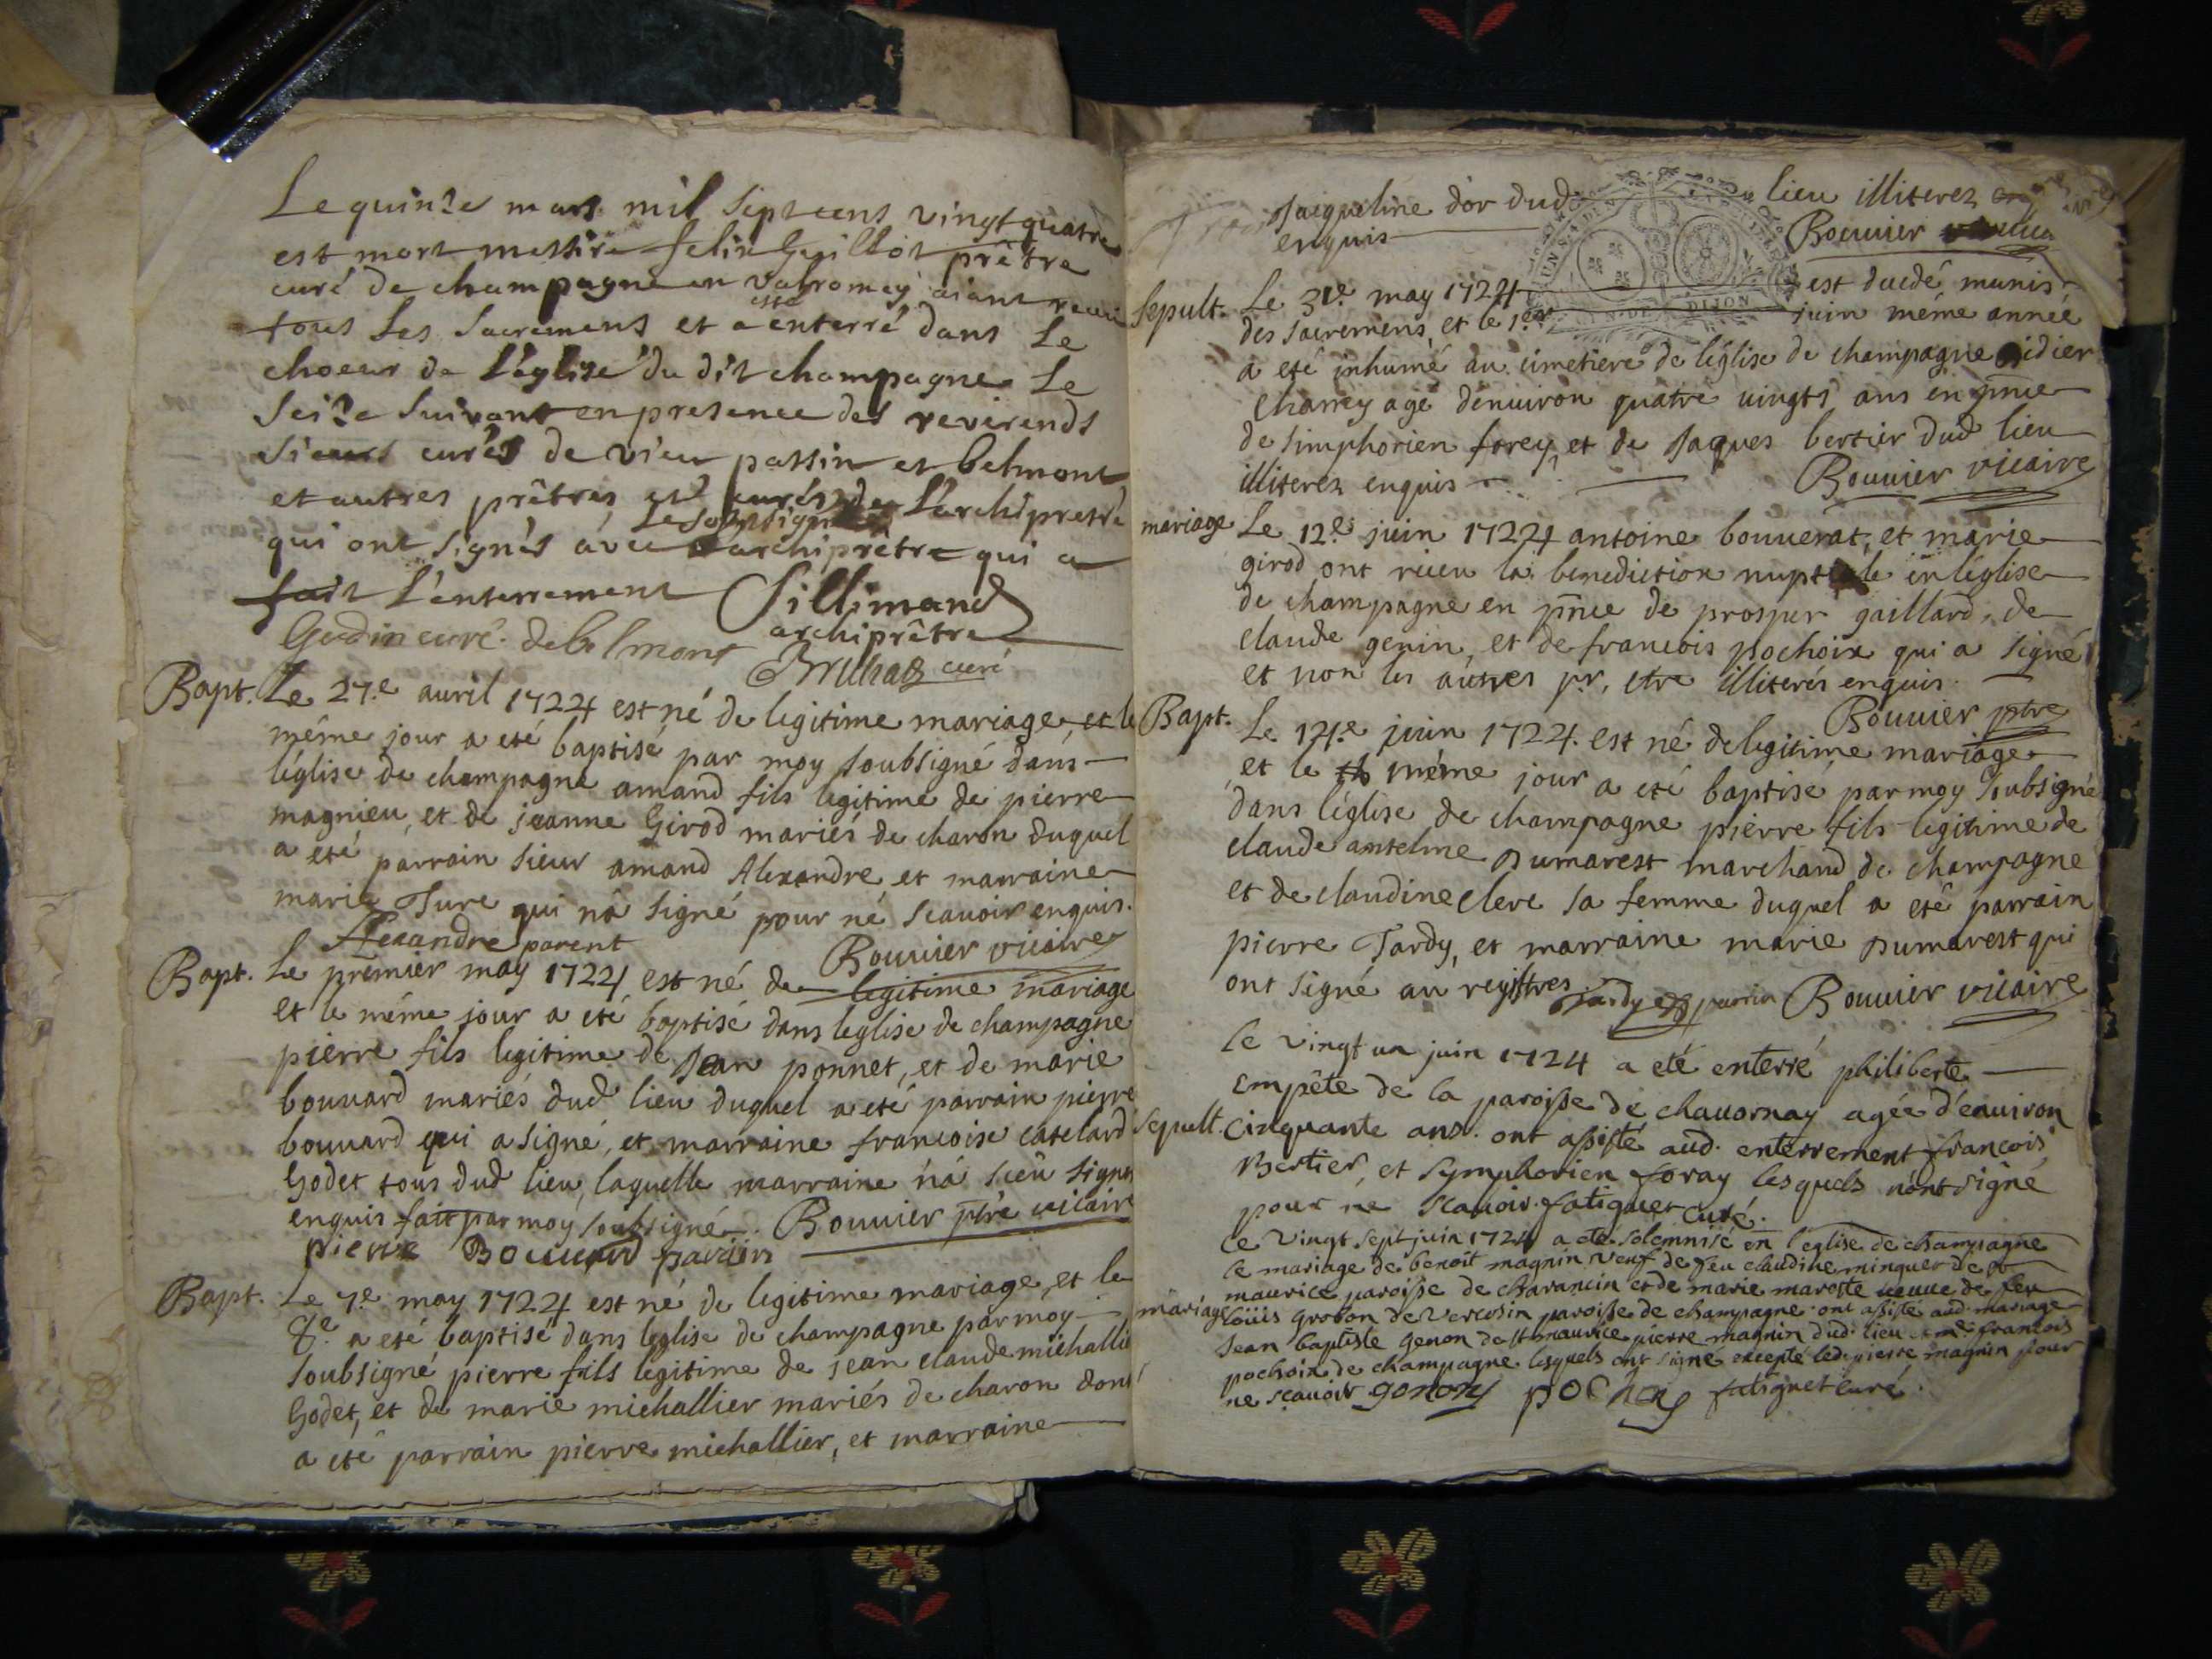 Le quinze mars mil sept cens vingt quatre
est mort messire felix Guillot prêtre
curé de champagne en valromey aiant recu
tous les Sacremens et a esté enterré dans Le
choeur de L'église du dit champagne Le
Seize suivant en presence des reverends
Sieurs curés de vieu passin et belmont
et autres prêtres et curés de L'archipretré
qui ont signés avec Le soussigné archiprêtre qui a
fait L'enterrement Sillimand
archiprêtre
Godin curé de belmont
curé
Bapt. Le 27.e auril 1724 est né de legitime mariage, et le
même jour a eté baptisé par moy soubsigné dans
léglise de champagne amand fils legitime de pierre
magnieu, et de jeanne Girod mariés de charon duquel
a eté parrain sieur amand Alexandre et marraine
marie Ture qui nà signé pour né scauoir enquis.
Alexandre parent
Bouuier vicaire
Bapt. Le premier may 1724 est né de legitime mariage
et le même jour a eté baptisé dans leglise de champagne
pierre fils legitime de Jean ponnet, et de marie
bouuard mariés dud lieu duquel a eté parrain pierre
bouuard qui a signé, et marraine francoise catelard
Godet tous dud lieu, laquelle marraine nà sceu signer
enquis fait par moy soubsigné. Bouuier ptre vicaire
pierre Bouuard parain
Bapt. Le 7.e may 1724 est né de legitime mariage, et le
8.e a eté baptisé dans leglise de champagne par moy
soubsigné pierre fils legitime de jean claude michallie
Godet, et de marie michallier mariés de charon dont
a eté parrain pierre michallier, et marraine
Jaiqueline dor dud lieu illiterez
enquis
Bouuier
GEN. DE DIJON
Sepult. Le 31.e may 1724 est decdé munis
des sacremens, et le 1.er juin même année
a eté inhumé au cimetiere de léglise de champagne didier
Charrey agé denuiron quatre uingts ans en pnce
de simphorien forey, et de Jaques bertier dud lieu
illiterez enquis
Bouuier vicaire
mariage Le 12.e juin 1724 antoine bouuerat, et marie
girod ont receu la benediction nuptiale en léglise
de champagne en pnce de prosper gaillard, de
claude genin, et de francois pochoix qui a signé
et non les autres pr. etre illiterés enquis.
Bouuier ptre
Bapt. Le 14.e juin 1724. est né de legitime mariage
et le même jour a eté baptisé par moy soubsigné
dans léglise de champagne pierre fils legitime de
claude antelme Dumarest marchand de champagne
et de claudine clerc sa femme duquel a eté parrain
pierre Tardy, et marraine marie Dumarest qui
ont signé au registres Tardy parrin Bouuier vicaire
le vingt un juin 1724 a eté enterré philiberte
Empête de la paroisse de chauornay agée d'enuiron
sepult. Cinquante ans. ont assisté aud. enterrement francois
Bertier, et Symphorien foray lesquels n'ont signé
pour ne scauoir. fatiguet curé.
Le Vingt sept juin 1724 a eté solemnisé en l'eglise de champagne
le mariage de benoit magnin veuf de feu claudine minguet de st
maurice paroisse de charancin et de marie maroste ueuue de feu
mariage Loüis Grobon de Vercosin paroisse de champagne ont assisté aud. mariage
Jean baptiste Genon de st maurice pierre magnin dud. lieu et mr francois
pochoix de champagne lesquels ont signé excepté led pierre magnin pour
ne scauoir genon pochoy fatiguet curé.